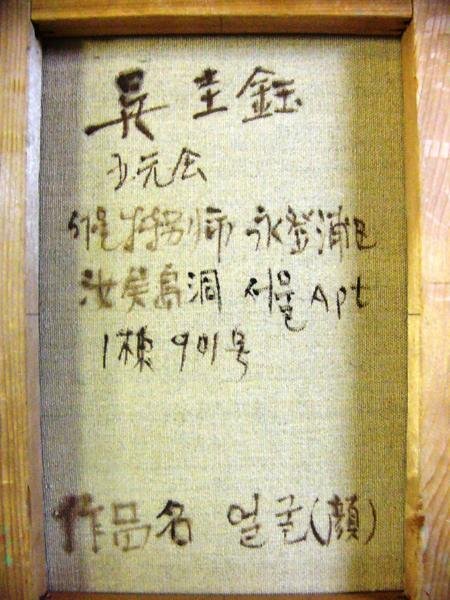 吳 圭 鈺
五元会
서울 特別市 永登浦区
汝矣島洞 서울 Apt
1棟 901号
作品名 얼굴(顔)